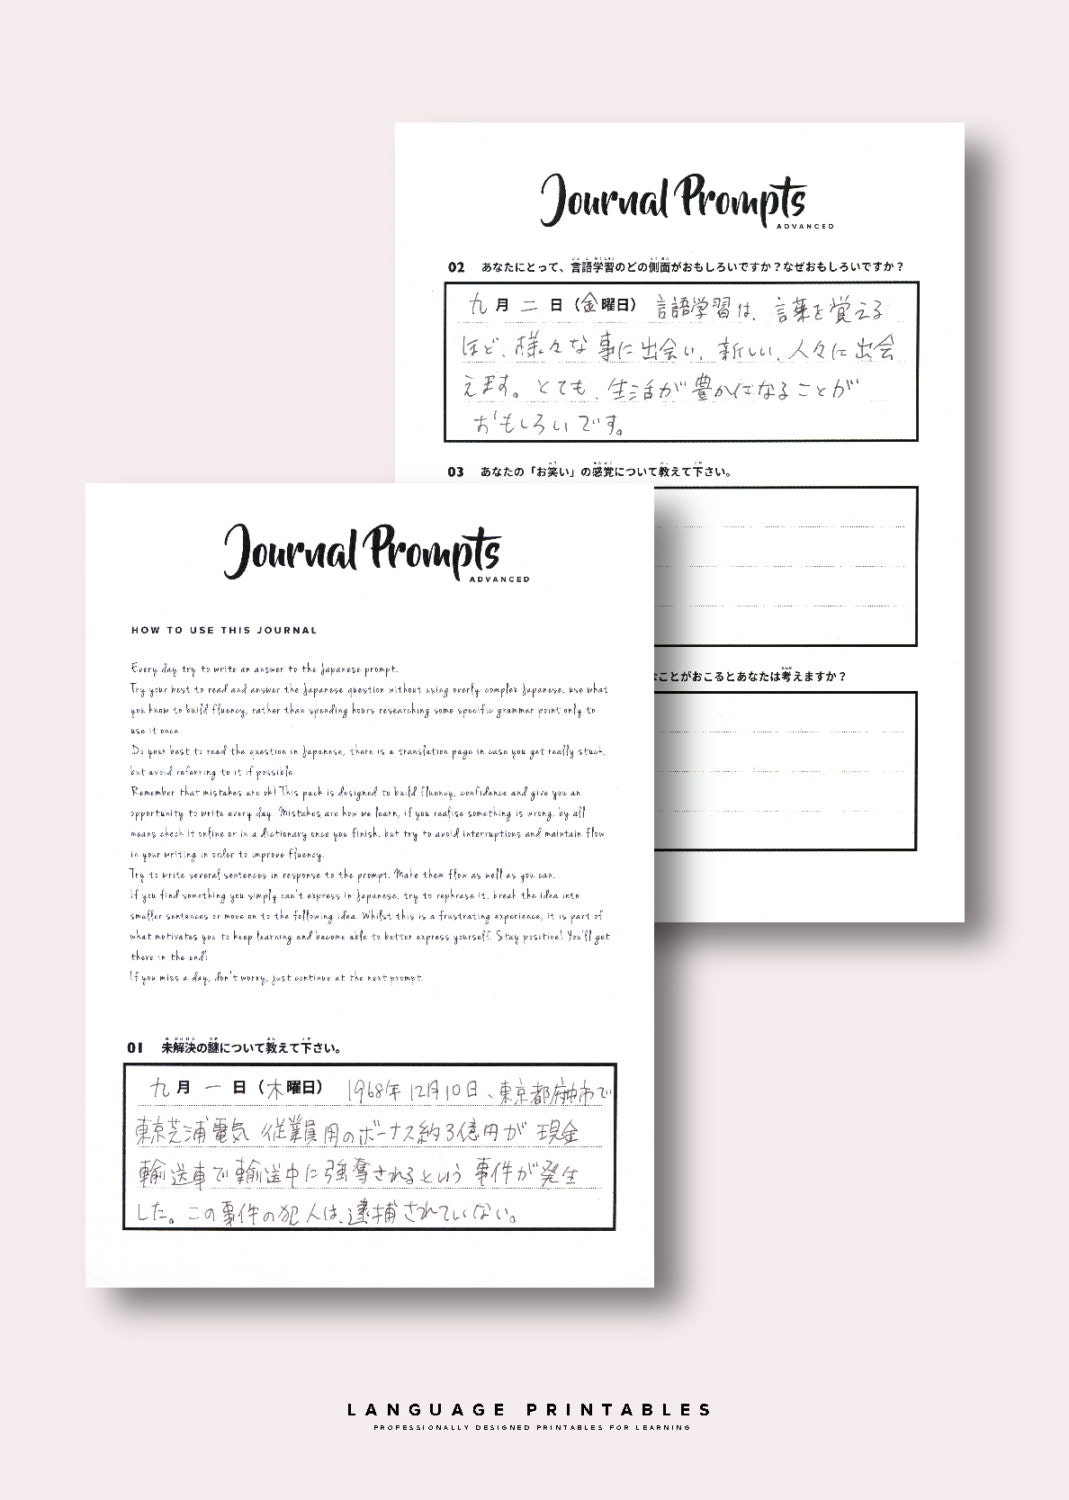 Journal Prompts
ADVANCED
02 あなたにとって、言語学習のどの側面がおもしろいですか？なぜおもしろいですか？
九月二日（金曜日） 言語学習は、言葉を覚える
ほど、様々な事に出会い、新しい、人々に出会
えます。とても、生活が豊かになることが
おもしろいです。
03 あなたの「お笑い」の感覚について教えて下さい。
ことがおこるとあなたは考えますか？
Journal Prompts
ADVANCED
HOW TO USE THIS JOURNAL
Every day try to write an answer to the Japanese prompt.
Try your best to read and answer the Japanese question without using overly complex Japanese, use what
you know to build fluency, rather than spending hours researching some specific grammar point only to
use it once
Do your best to read the question in Japanese, there is a translation page in case you get really stuck,
but avoid referring to it if possible
Remember that mistakes are ok! This pack is designed to build fluency, confidence and give you an
opportunity to write every day. Mistakes are how we learn, if you realise something is wrong, by all
means check it online or in a dictionary once you finish, but try to avoid interruptions and maintain flow
in your writing in order to improve fluency.
Try to write several sentences in response to the prompt. Make them flow as well as you can.
If you find something you simply can't express in Japanese, try to rephrase it, break the idea into
smaller sentences or move on to the following idea. Whilst this is a frustrating experience, it is part of
what motivates you to keep learning and become able to better express yourself. Stay positive! You'll get
there in the end!
If you miss a day, don't worry, just continue at the next prompt.
01 未解決の謎について教えて下さい。
九月一日（木曜日） 1968年12月10日、東京都府中市で
東京芝浦電気 従業員用のボーナス約3億円が 現金
輸送車で輸送中に強奪されるという 事件が発生
した。この事件の犯人は、逮捕されていない。
LANGUAGE PRINTABLES
PROFESSIONALLY DESIGNED PRINTABLES FOR LEARNING